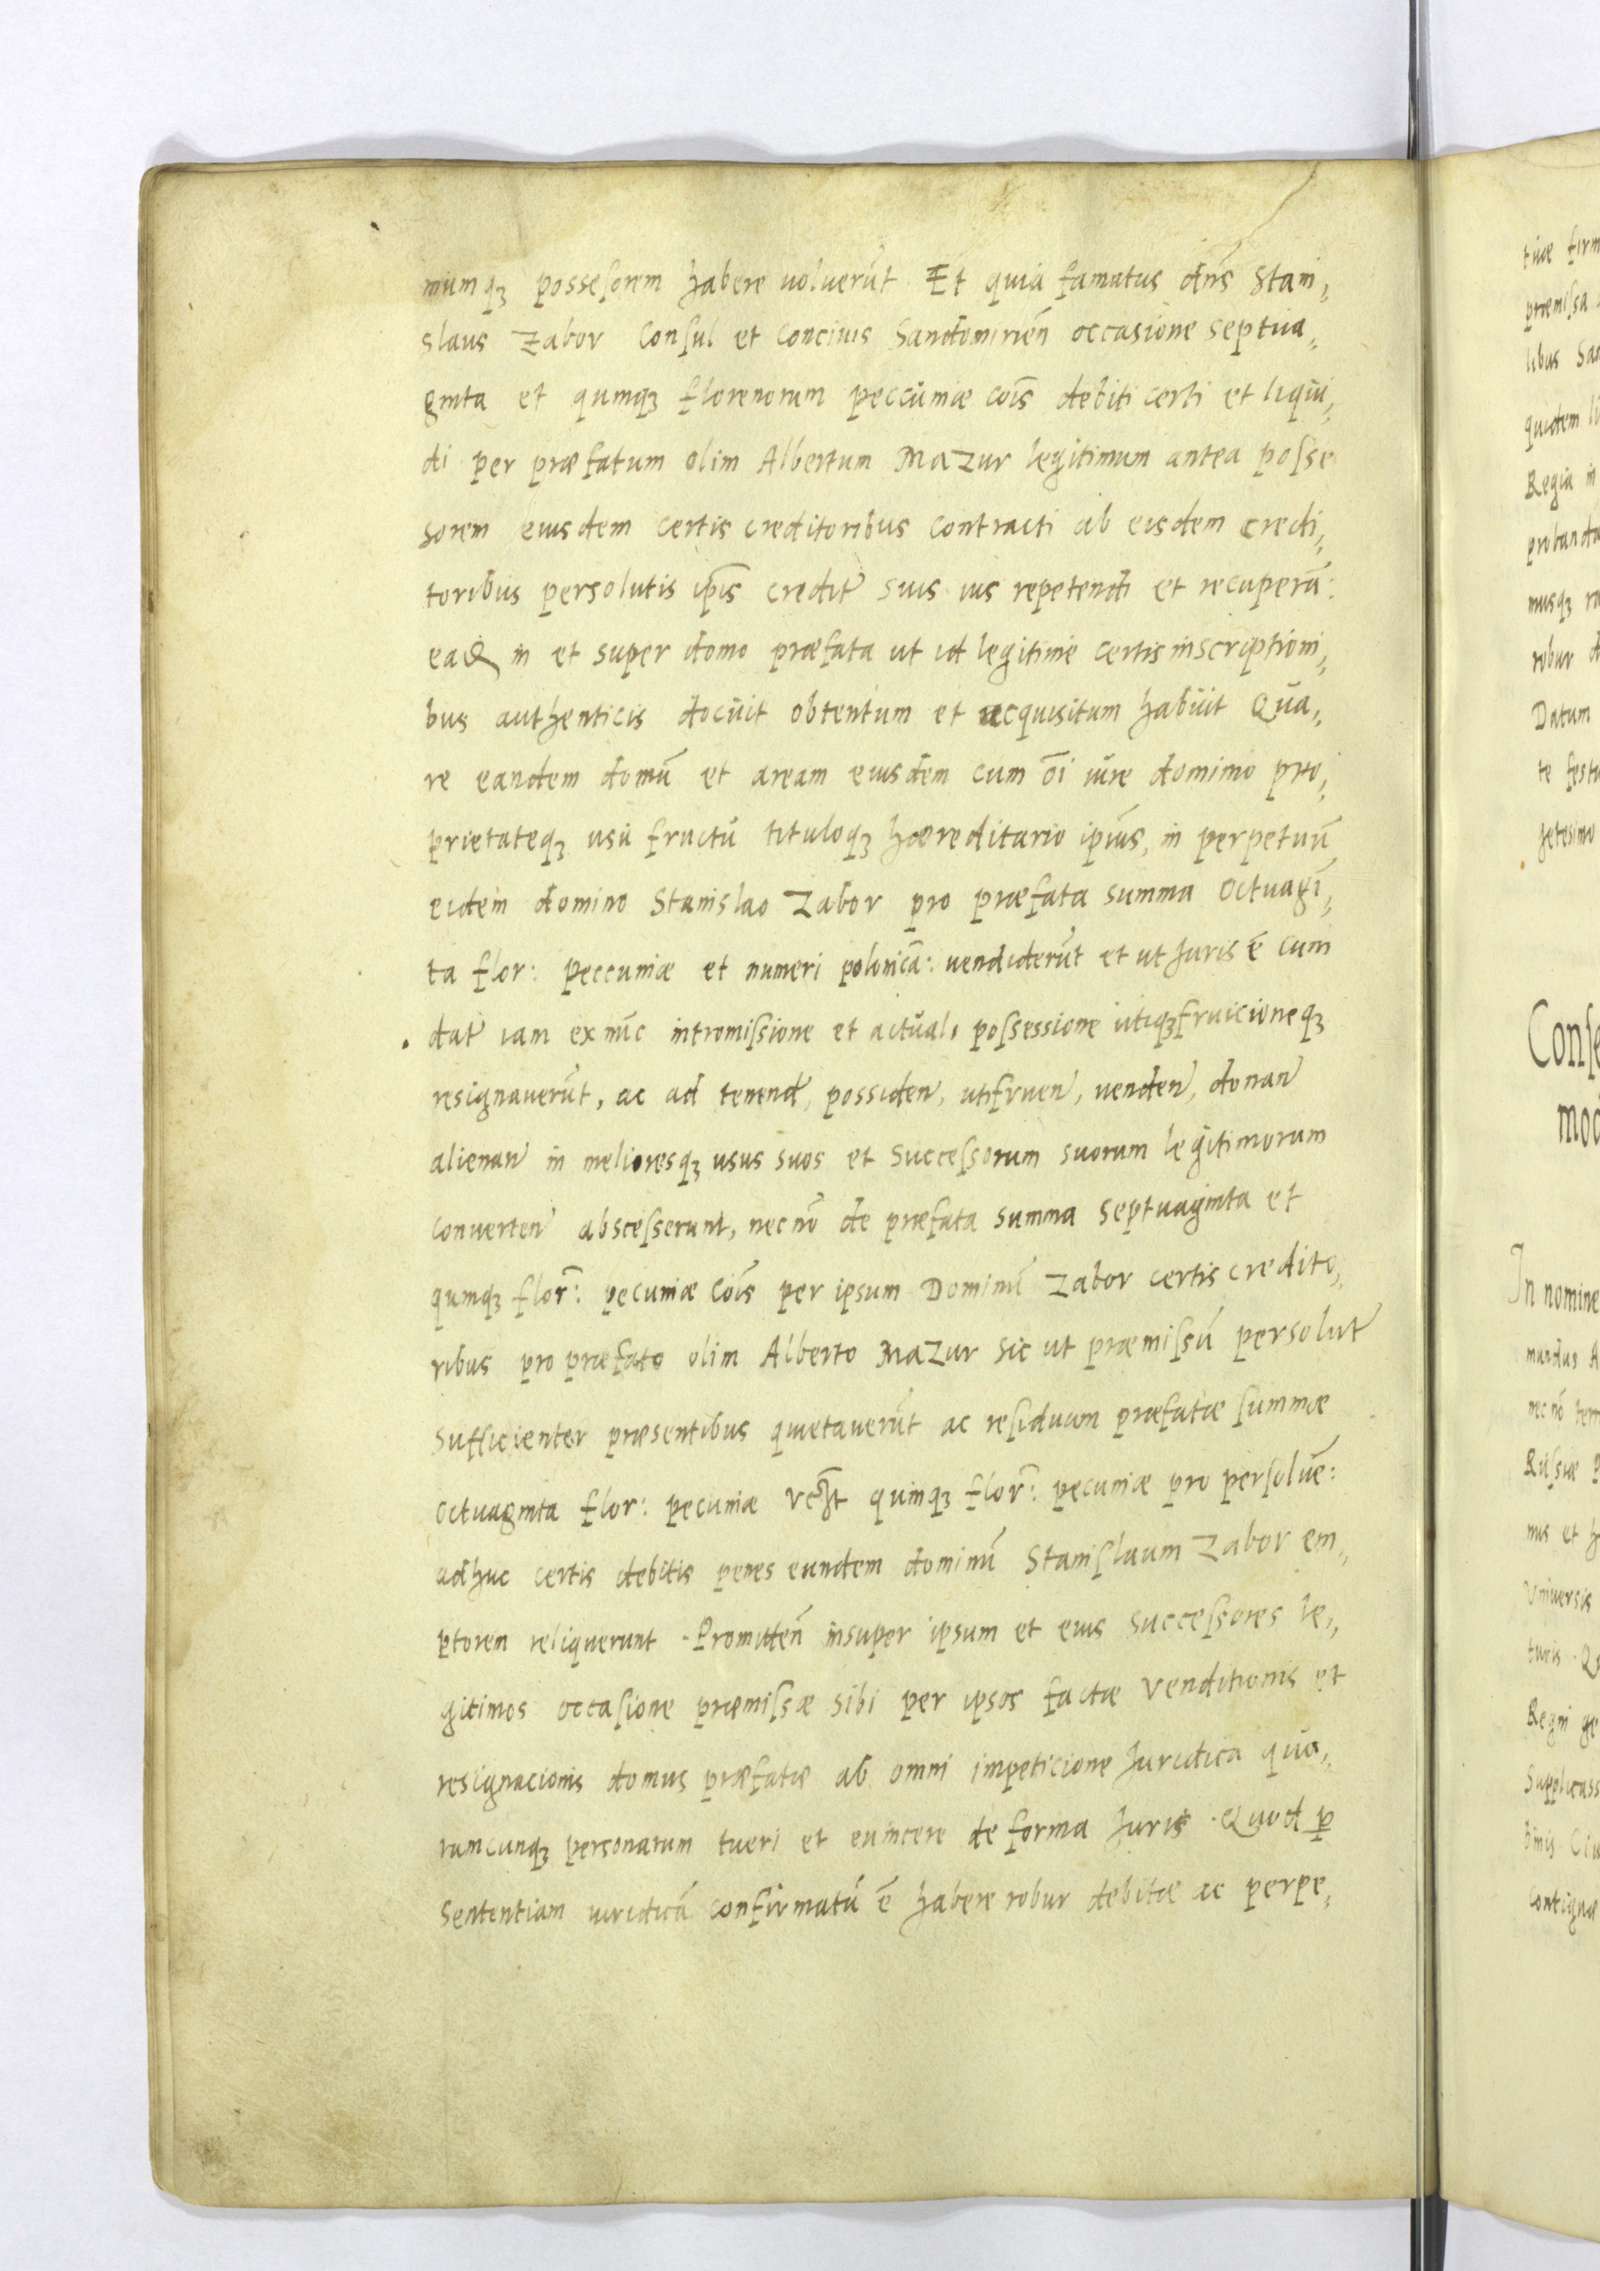 mumq₃ possesorem habere voluerūt Et quia famatus dn̄s Stani,,
slaus Zabor Consul et Concivis Sandomirien̄ occasione septua,,
ginta et quinq₃ florenorum peccuniæ cōis debiti certi et liqui,,
di per præfatum olim Albertum Mazur legitimum antea posse
sorem eiusdem certis creditoribus contracti ab eisdem credi,,
toribus persolutis ip̄is credit suis ius repetendi et recuperā:
ead in et super domo præfata ut id legitime certis inscriptioni,,
bus authenticis docuit obtentum et acquisitum habuit Qua,,
re eandem domū et aream eiusdem cum ōi iure dominio pro,,
prietateq₃ usu fructū tituloq₃ hæreditario ip̄ius, in perpetuū
eidem domino Stanislao Zabor pro præfata summa Octuagī,,
ta flor: peccuniæ et numeri polonicā: vendiderūt et ut Juris ē cum
dat iam ex nūc intromissione et actuali possessione utiq₃fruicioneq₃
resignaverūt, ac ad tenend, possiden, utifruen, venden, donan
alienan in melioresq₃ usus suos et Successorum suorum legitimorum
converten abscesserunt, nec nō de præfata summa septuaginta et
quinq₃ flor̄: pecuniæ Cōis per ipsum Dominū Zabor certis credito,,
ribus pro præfato olim Alberto Mazur sic ut præmissū persolut
sufficienter præsentibus quietaverūt ac residuum præfatæ summæ
octuaginta flor: pecuniæ quinq₃ flor̄: pecuniæ pro persolvē:
adhuc certis debitis penes eundem dominū Stanislaum Zabor em,,
ptorem reliquerunt. Promitten̄ insuper ipsum et eius successores le,,
gitimos occasione præmissæ sibi per ipsos factæ Venditionis et
resignacionis domus præfatæ ab omni impeticione Juridica quo,,
rumcunq₃ personarum tueri et evincere de forma Juris. Quod ꝑ
Sententiam iuridicā confirmatū ē habere robur debitæ ac perpe,,
tuæ firm
præmissa
libus San
quidem li
Regia in
probanda
musq₃ ra
robur d
Datum
te festu
gesimo
Conse
mod
In nomine
mundus A
nec nō terr
Russiæ P
nis et h
Universis
turis. Q
Regni ge
Supplicass
Civ
contiguæ